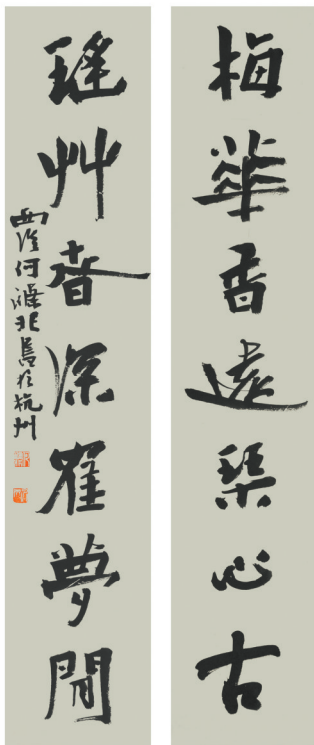 梅華香遠琹心古
瑤艸春深隺夢閒
西泠何滌非書於杭州